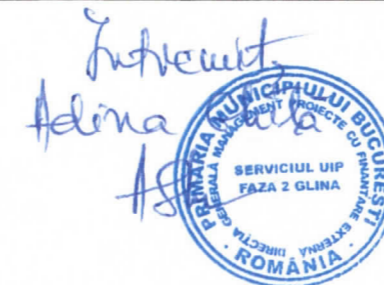 Întocmit,
Adina
PRIMĂRIA MUNICIPIULUI BUCUREȘTI
DIRECȚIA GENERALĂ MANAGEMENT PROIECTE CU FINANȚARE EXTERNĂ
SERVICIUL UIP
FAZA 2 GLINA
ROMÂNIA